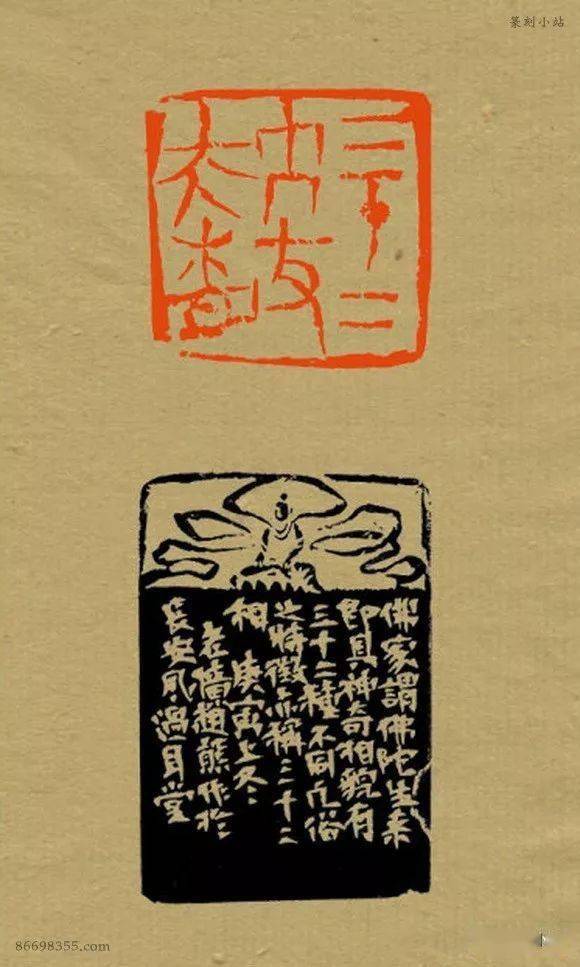 篆刻小站
三十二
佛家謂佛陀生來
即具神奇相貌有
三十二種不同凡俗
之特徵亦稱三十二
相 庚寅上冬
趙熊作於
長安風過耳堂
86698355.com